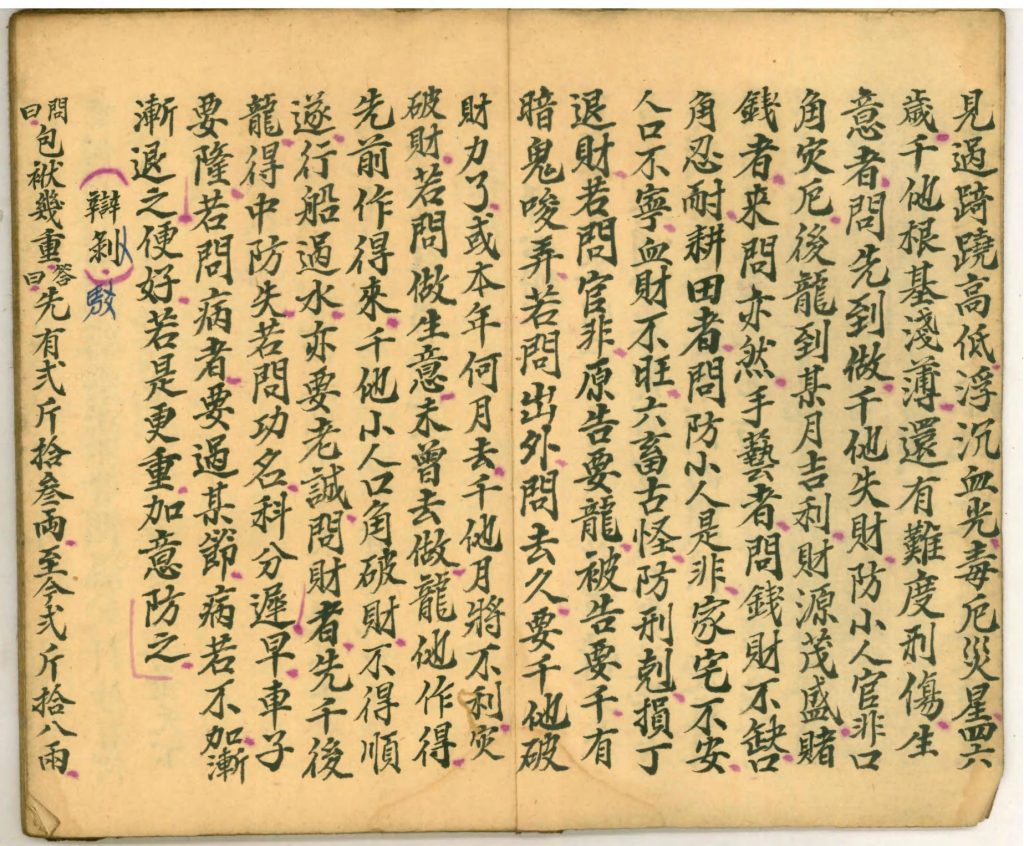 見過踦蹺高低浮沉血光毒厄災星四六
歲千他根基淺薄還有難度刑傷生
意者問先到做千他失財防小人官非口
角灾厄後龍到某月吉利財源茂盛賭
錢者來問亦然手藝者問錢財不缺口
角忍耐耕田者問防小人是非家宅不安
人口不寧血財不旺六畜古怪防刑剋損丁
退財若問官非原告要龍被告要千有
暗鬼唆弄若問出外問去久要千他破
財力了或本年何月去千他月將不利灾
破財若問做生意未曾去做龍他作得
先前作得來千他小人口角破財不得順
遂行船過水亦要老誠問財者先千後
龍得中防失若問功名科分遲早車子
要隆若問病者要過某節病若不加漸
漸退之便好若是更重加意防之
辯剝
問曰包袱幾重答曰先有弍斤拾叁兩至今弍斤拾八兩